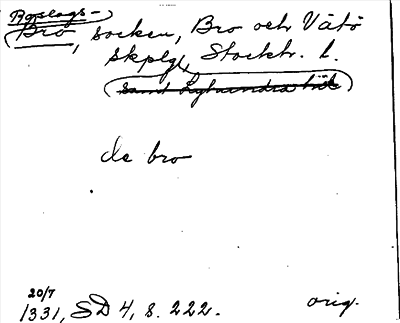 Roslags-
Bro, socken, Bro och Vätö
skplg, Stockh. l.
de bro
20/7
1331, SD 4, s. 222. orig.